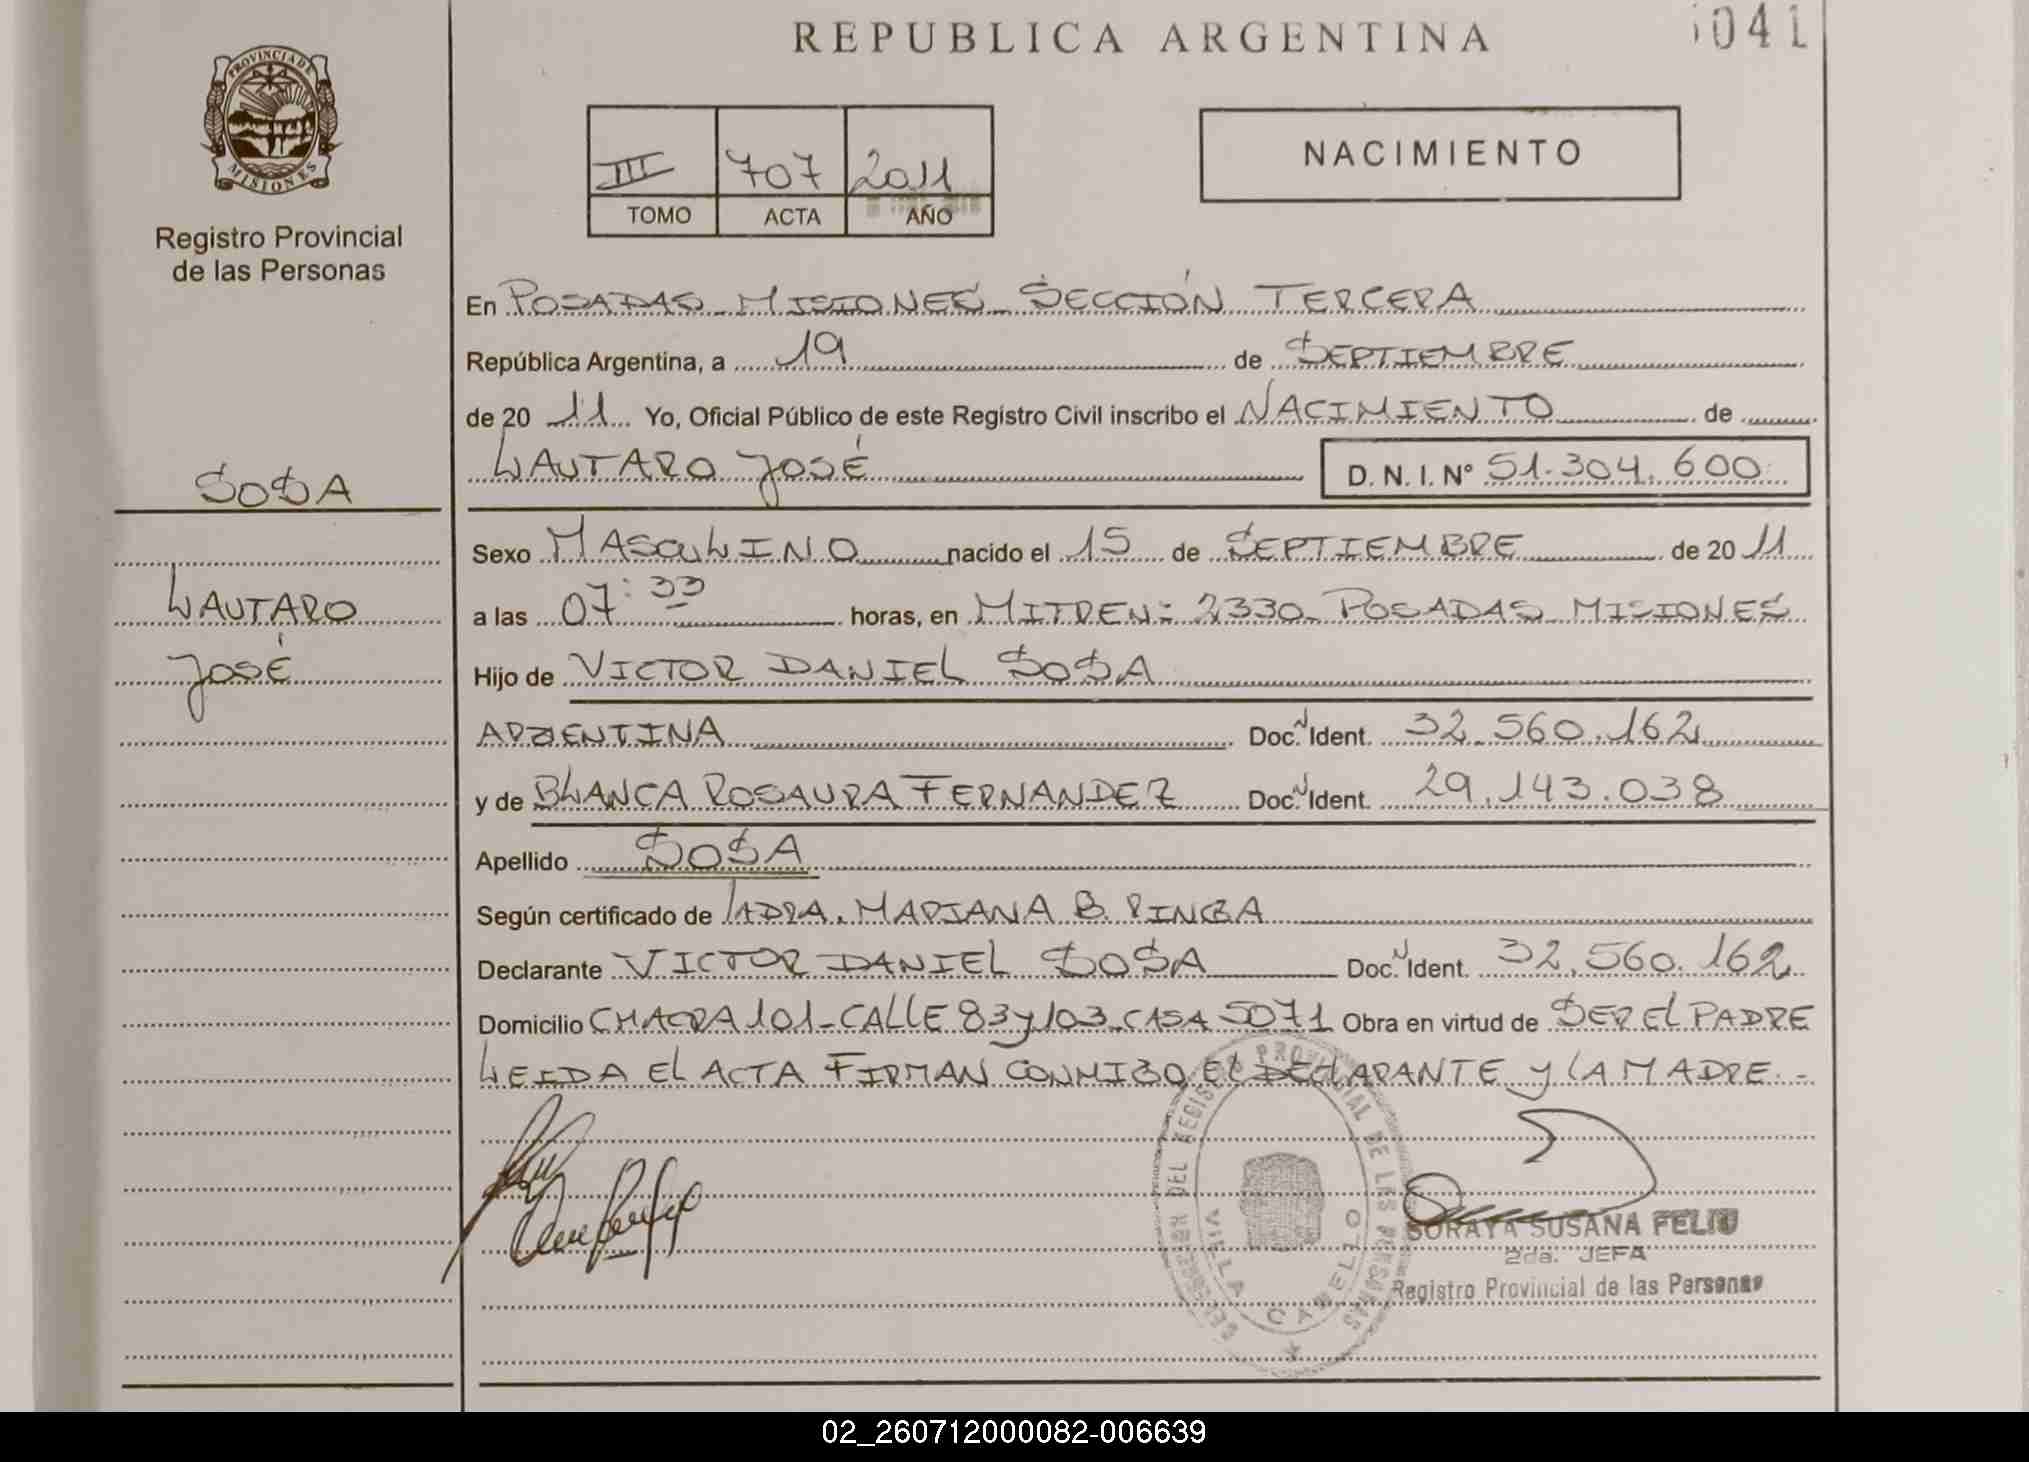 REPUBLICA ARGENTINA
041
PROVINCIA DE
MISIONES
Registro Provincial
de las Personas
III 707 2011
TOMO ACTA AÑO
NACIMIENTO
En POSADAS MISIONES SECCIÓN TERCERA
República Argentina, a 19 de SEPTIEMBRE
de 20 11 Yo, Oficial Público de este Registro Civil inscribo el NACIMIENTO de
LAUTARO JOSÉ D. N. I. Nº 51.304.600
SOSA
LAUTARO
JOSÉ
Sexo MASCULINO nacido el 15 de SEPTIEMBRE de 20 11
a las 07:33 horas, en MITRE N: 2330 POSADAS MISIONES
Hijo de VICTOR DANIEL SOSA
ARGENTINA Doc. N Ident. 32.560.162
y de BLANCA ROSAURA FERNANDEZ Doc. N Ident. 29.143.038
Apellido SOSA
Según certificado de MARIANA B.
Declarante VICTOR DANIEL SOSA Doc. N Ident. 32.560.162
Domicilio CHACRA 101-CALLE 83 y 103 CASA 5071 Obra en virtud de SER EL PADRE
LEIDA EL ACTA FIRMAN CONMIGO EL DECLARANTE Y LA MADRE.-
DEL REGISTRO PROVINCIAL DE LAS PERSONAS
VILLA CABELLO
SORAYA SUSANA FELIU
2da. JEFA
Registro Provincial de las Personas
02_260712000082-006639